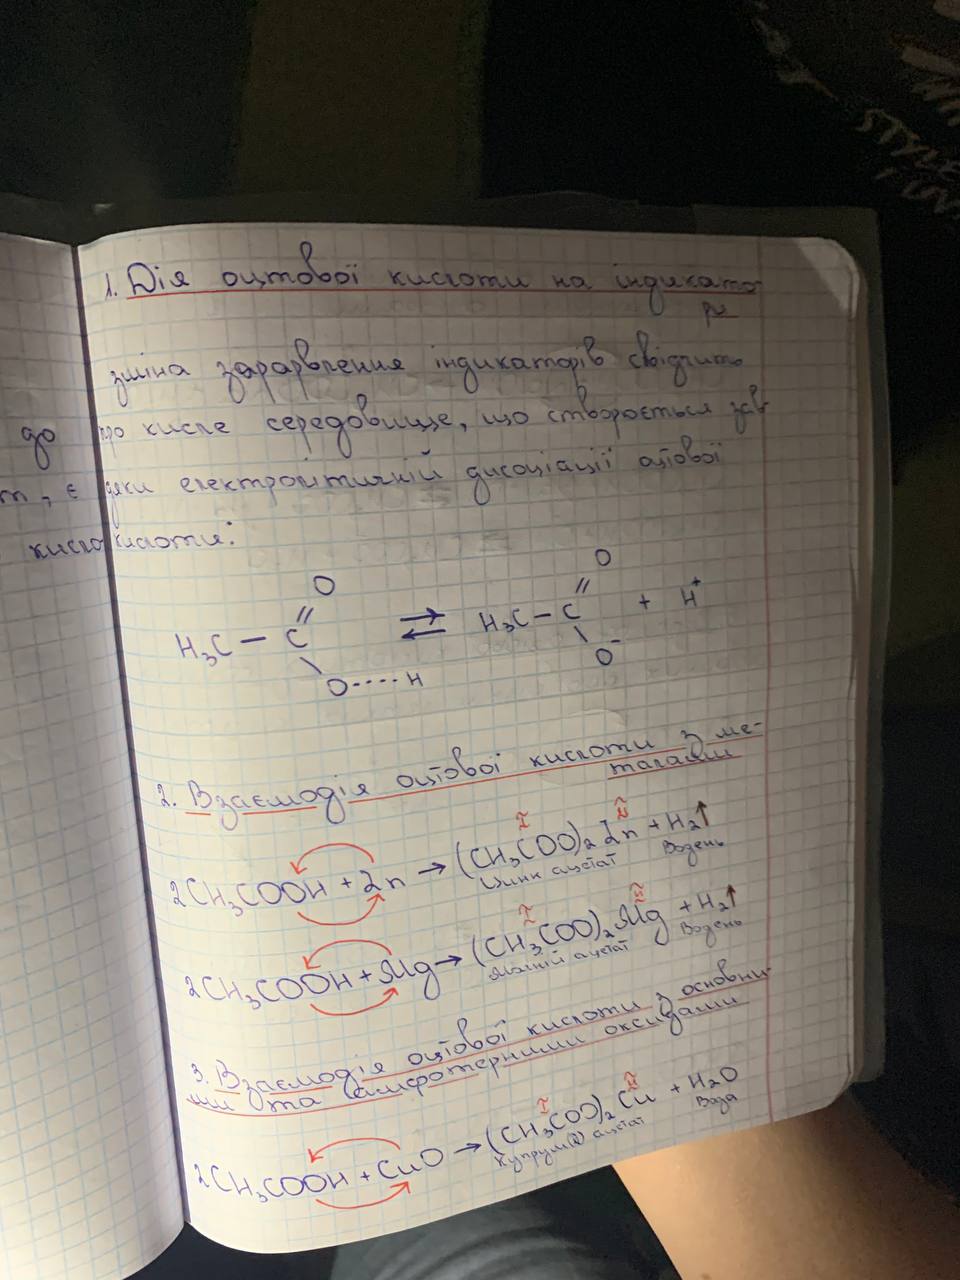 STYLE
1. Дія оцтової кислоти на індикато
ри
зміна зарарвлення індикаторів свідчить
до
про кисле середовище, що створюється зав
т, є
дяки електролітичній дисоціації оцтової
кисло
кислоти:
O
O
//
//
H₃C – C ⇄ H₃C – C + H⁺
\
\
O----H
O⁻
2. Взаємодія оцтової кислоти з ме-
талами
I II
2CH₃COOH + Zn → (CH₃COO)₂Zn + H₂↑
Цинк ацетат Водень
I II
2CH₃COOH + Mg → (CH₃COO)₂Mg + H₂↑
Магній ацетат Водень
3. Взаємодія оцтової кислоти з основни-
ми та амфотерними оксидами
I II
2CH₃COOH + CuO → (CH₃COO)₂Cu + H₂O
Купрум(2) ацетат Вода